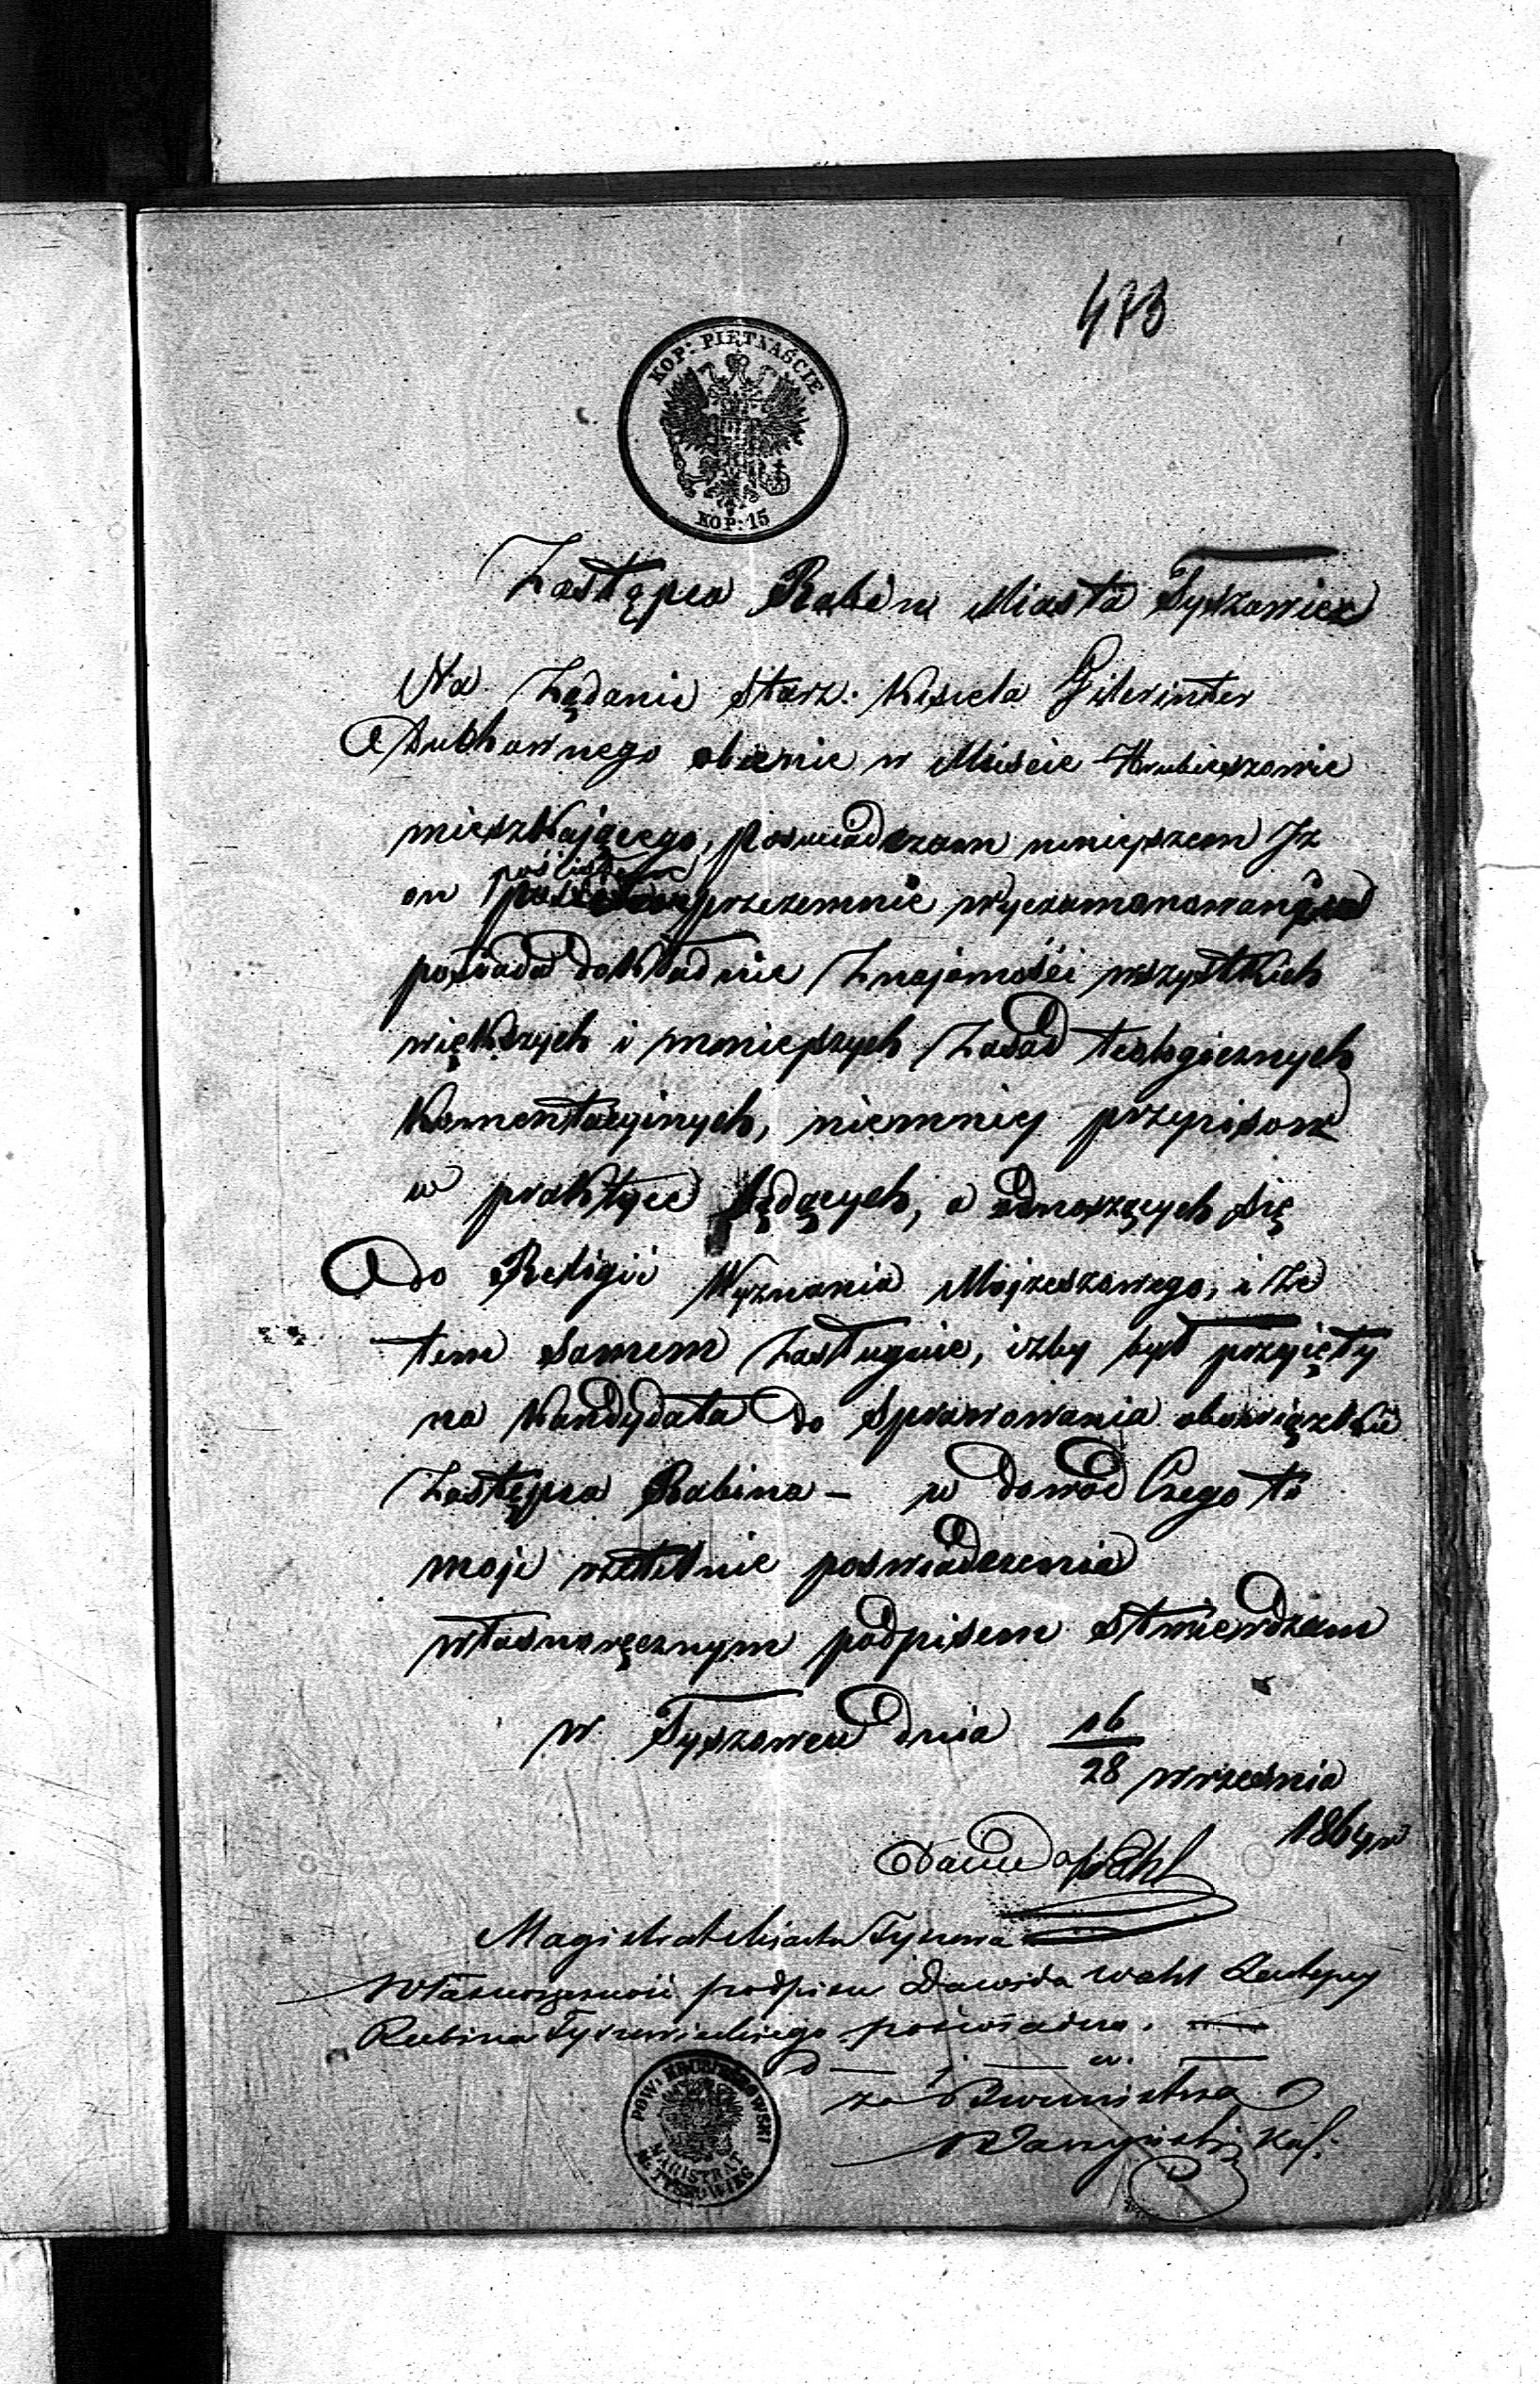 473
KOP: PIĘTNAŚCIE
KOP: 15
Zastępca Rabina Miasta Tyszowiec
Na Żądanie Starz: Kisiela
Duchownego obecnie w Mieście Hrubieszowie
mieszkającego, poswiadczam niniejszem Iż
on przezemnie wyexamonowany
posiada dokładnie Znajomości wszystkich
większych i mniejszych Zasad teologicznych
Komentacyinych, niemniej przepisow
w praktyce będących, a odnoszących się
do Religii Wyznania Mojzeszowego, i że
tem samem Zasługuie, iżby był przyięty
na Kandydata do Sprawowania obowiązków
Zastępca Rabina – w dowód Czego to
moje rzetelnie poswiadczenie
własnoręcznym podpisem stwierdzam
w Tyszowcu dnia 16
28 września
1864 r
Dawid Wahl
Magistrat Miasta Tyszowca
Własnoręczność podpisu Dawida Wahl Zastępcy
Rabina Tyszowieckiego poświadcza.
za Burmistrza
Kas:
POW: HRUBIESZOWSKI
MAGISTRAT
M. TYSZOWIEC